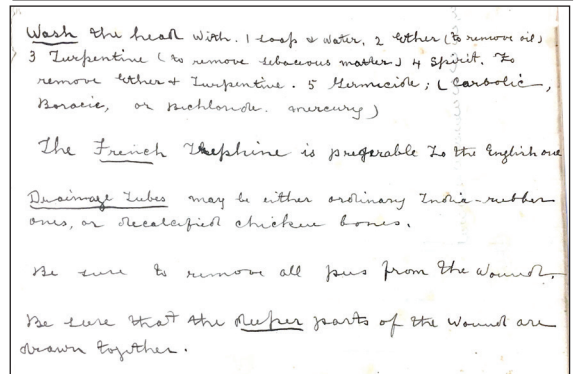 Wash the head with. 1 soap & water, 2 Ether (to remove oil)
3 Turpentine (to remove sebaceous matter) 4 Spirit. To
remove Ether & Turpentine. 5 Germicide; (Carbolic,
Boracic, or Bichloride. mercury)
The French Trephine is preferable to the English one
Drainage Tubes may be either ordinary India-rubber
ones, or decalcified chicken bones.
Be sure to remove all pus from the wound.
Be sure that the deeper parts of the wound are
drawn together.